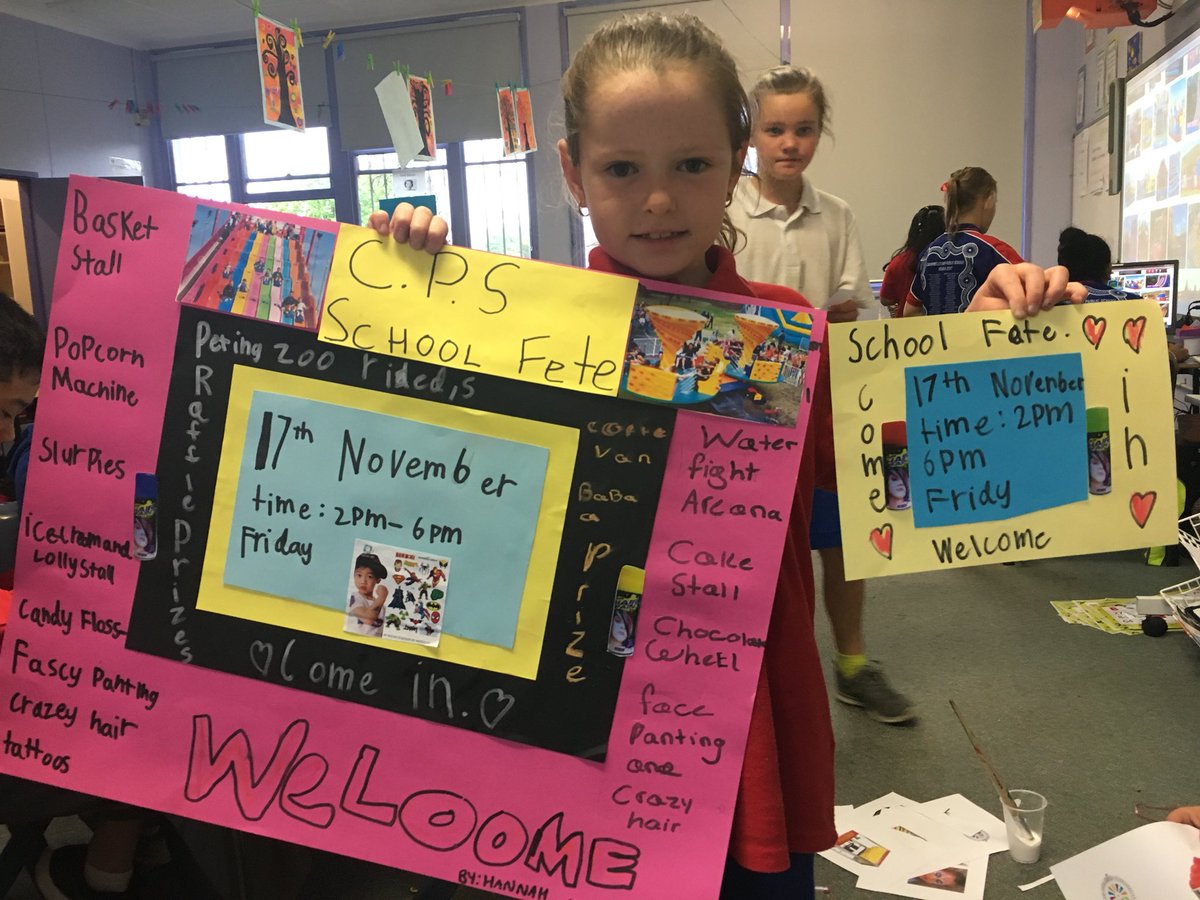 Basket
Stall
Popcorn
Machine
Slurpies
icecream and
Lolly Stall
Candy Floss
Fascy Panting
crazey hair
tattoos
C.P.S
School Fete
Pering 200 rideds
Raffle Prizes
17th November
time: 2pm- 6pm
Friday
Coffe
Van
BaBa
a Prize
Come in.
Welcome
By: Hannah
Water
fight
Areana
Cake
Stall
Chocolate
Wheel
face
Panting
and
Crazy
hair
School Fete.
Come
in
17th November
time: 2pm
6pm
Fridy
Welcome